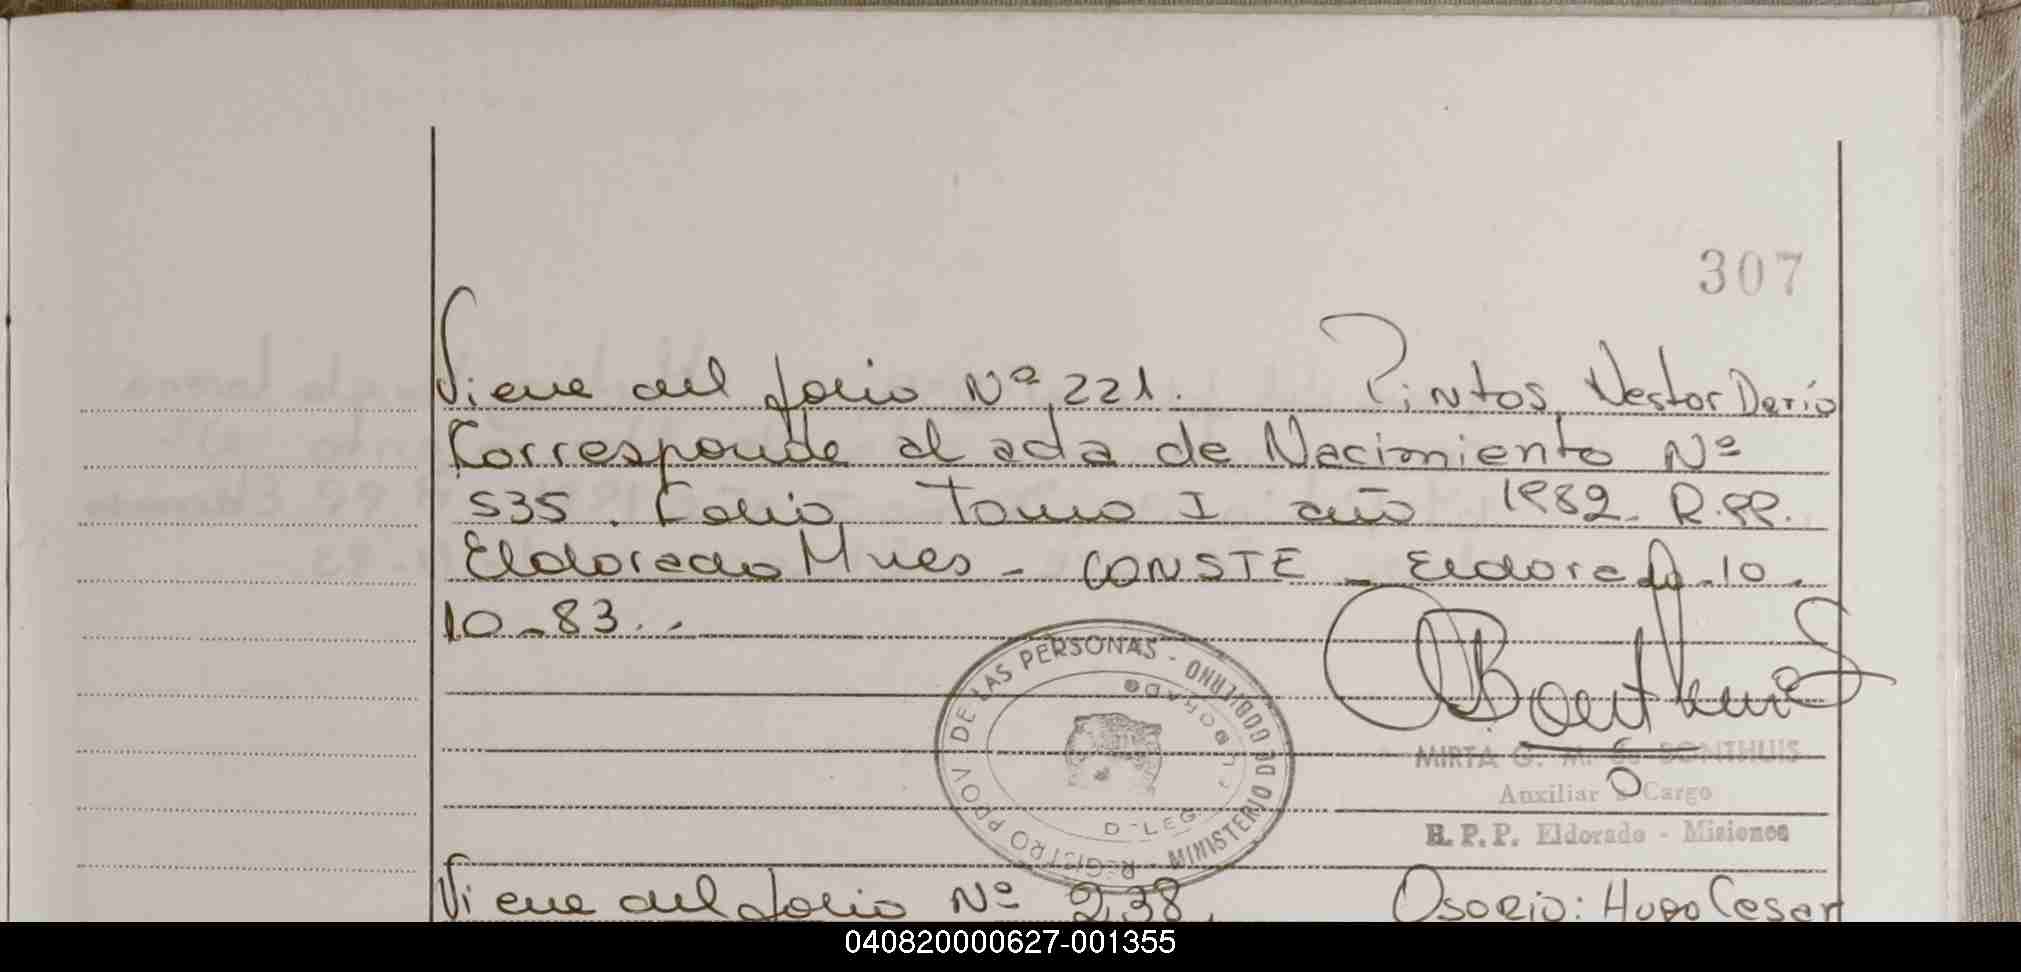 307
Viene del folio Nº 221. Pintos, Nestor Dario
Corresponde al acta de Nacimiento Nº
535. Folio, Tomo I año 1982. R.PP.
Eldorado Mnes - CONSTE - Eldorado. 10.
10-83..
REGISTRO PROV DE LAS PERSONAS - MINISTERIO DE GOBIERNO
DELEG. ELDORADO
MIRTA G. M. de BONTHUIS
Auxiliar a Cargo
R. P. P. Eldorado - Misiones
Viene del folio Nº 238, Osorio: Hugo Cesar
040820000627-001355